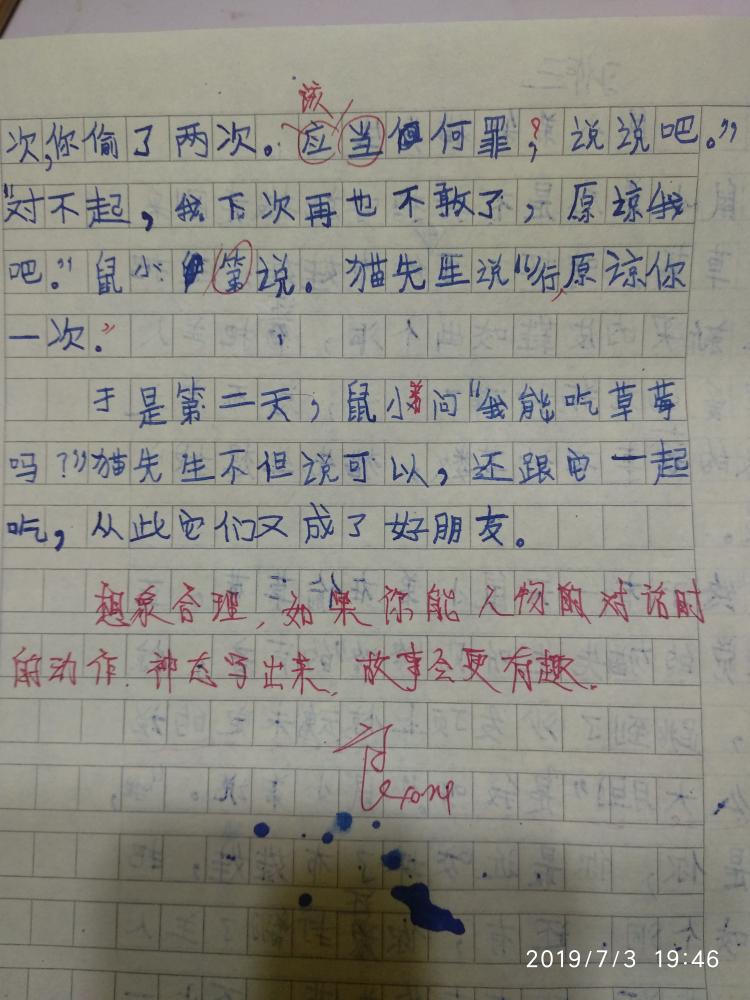 该
次,你偷了两次。应当何罪?,说说吧。”
“对不起，我下次再也不敢了，原谅我
吧。”鼠小第说。猫先生说“行,原谅你
一次。”
于是第二天，鼠小弟问“我能吃草莓
吗?”猫先生不但说可以，还跟它一起
吃，从此它们又成了好朋友。
想象合理,如果你能人物的对话时
的动作.神态写出来,故事会更有趣.
2019/7/3 19:46